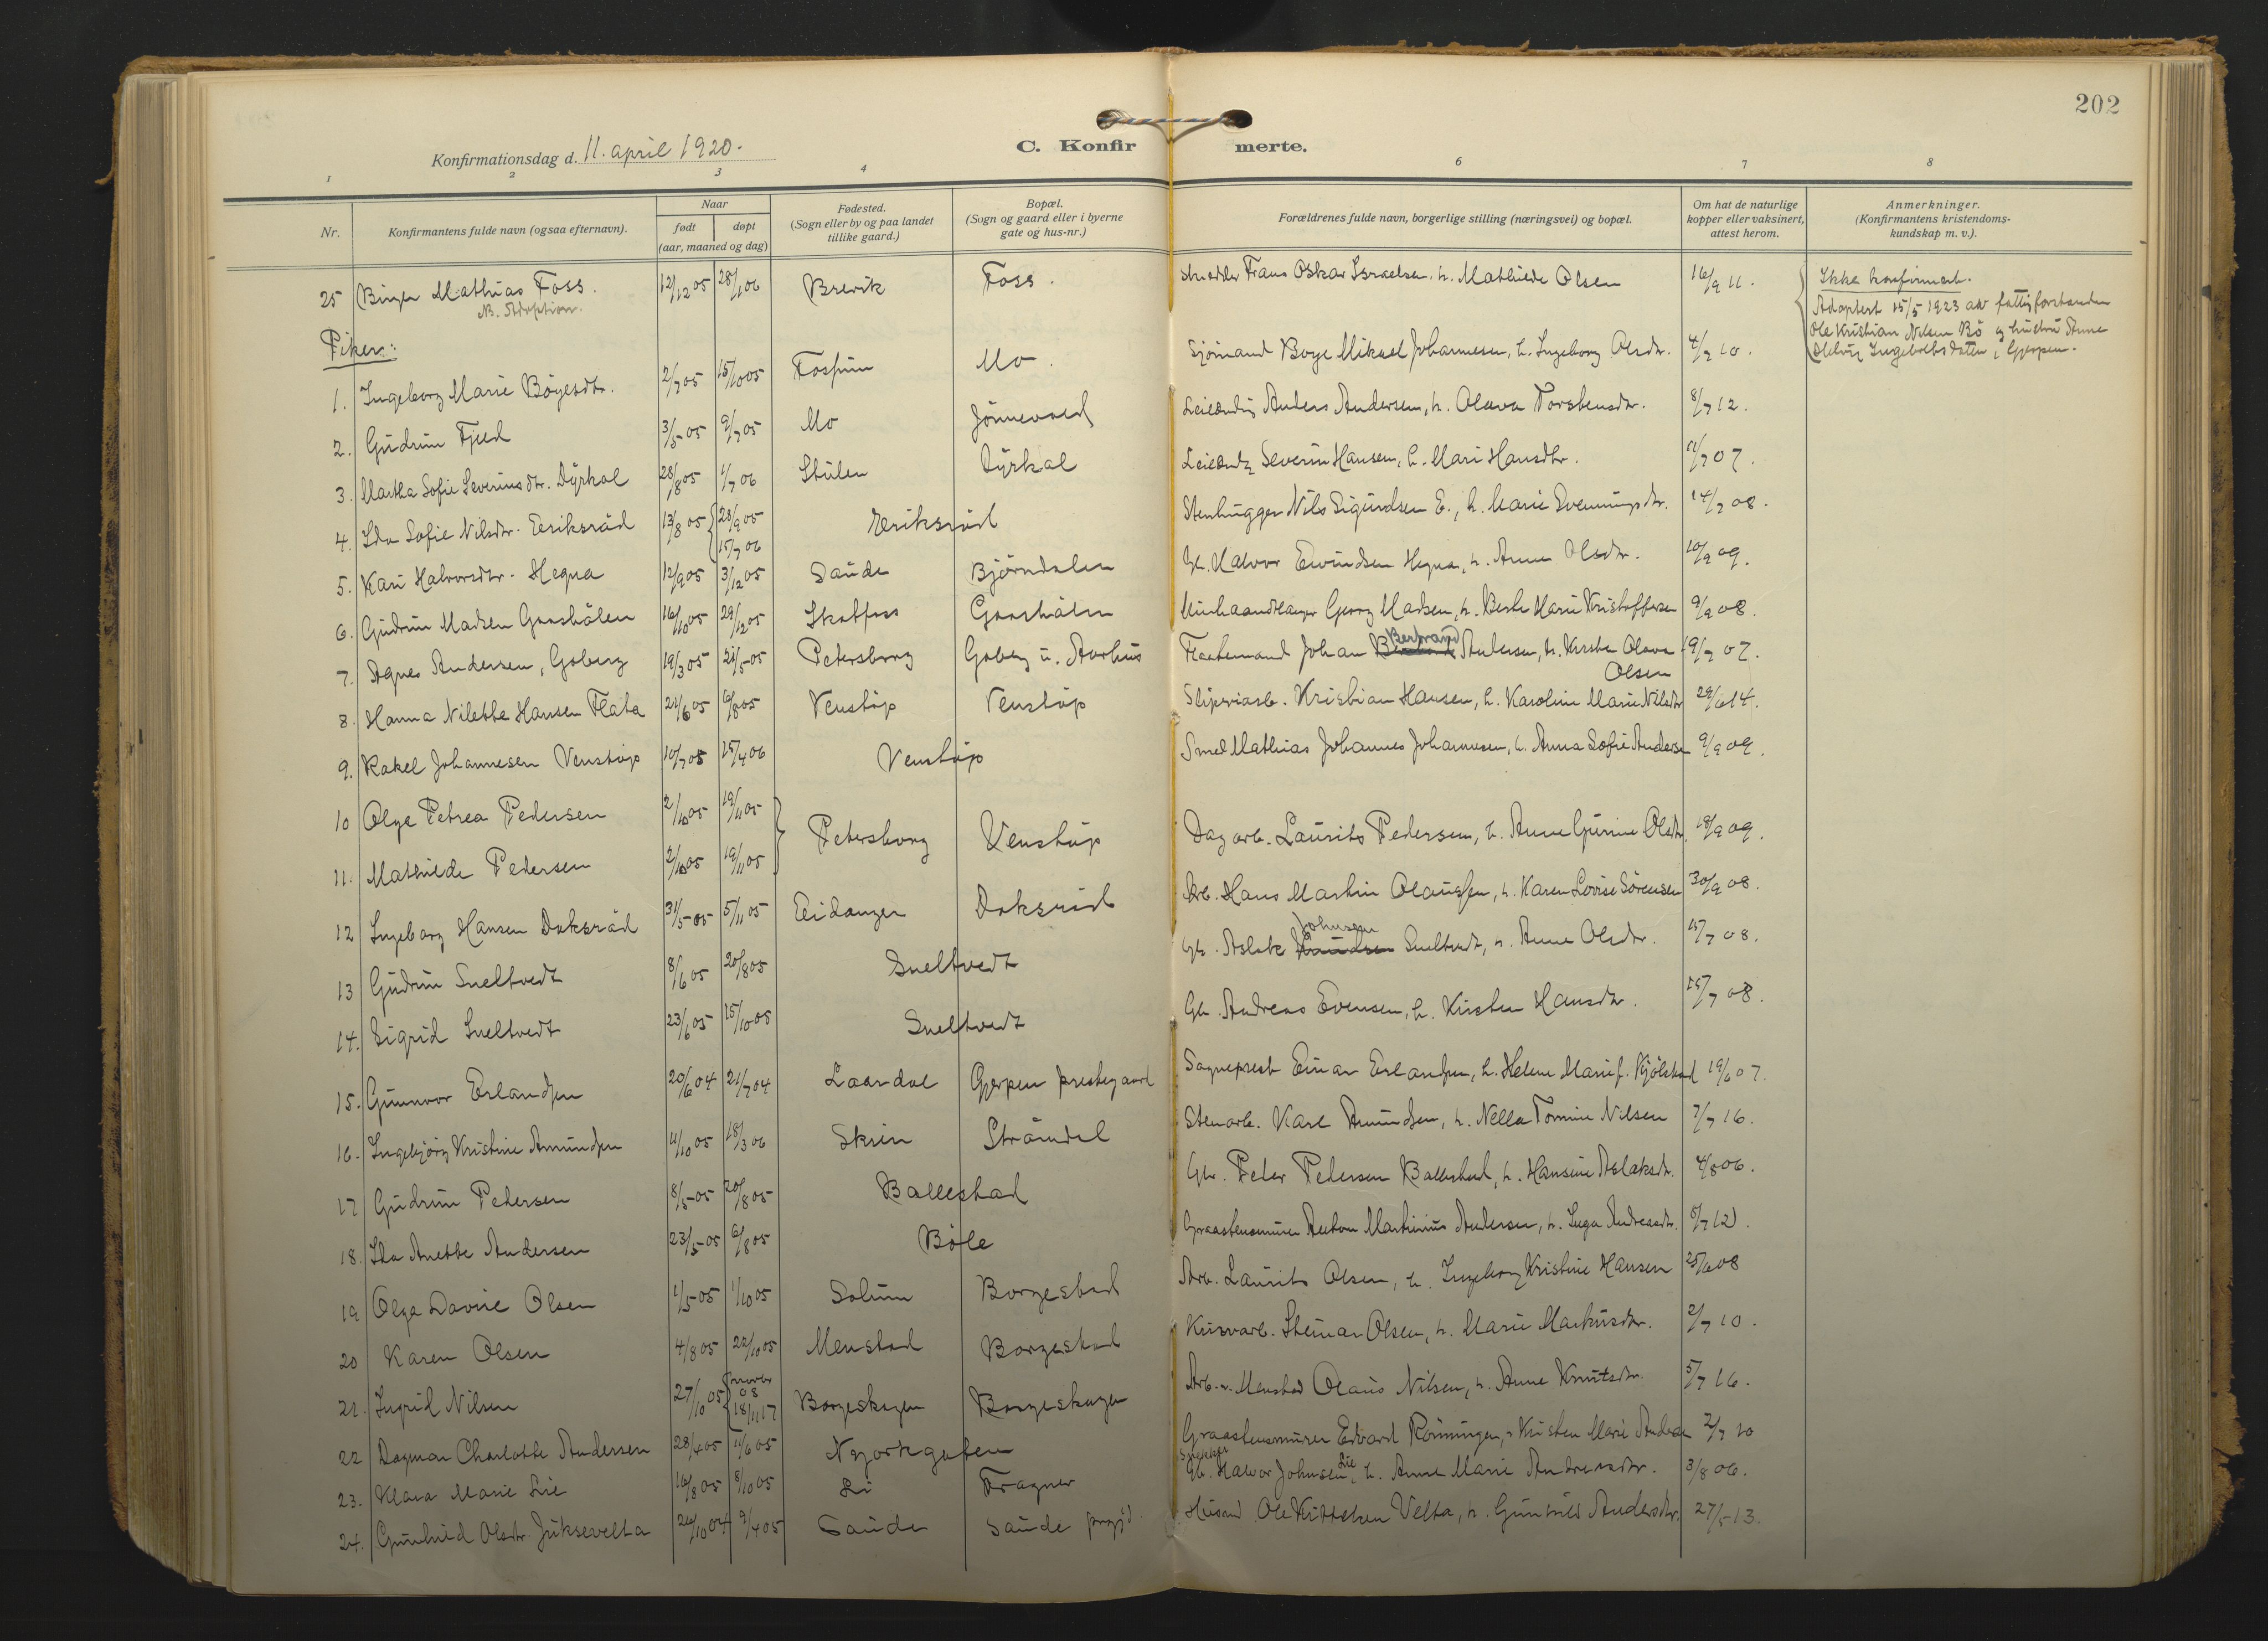 202
Konfirmationsdag d. 11. april 1920.
C. Konfirmerte.
1 2 3 4 6 7 8
Nr. Konfirmantens fulde navn (ogsaa efternavn). Naar født døpt (aar, maaned og dag) Fødested. (Sogn eller by og paa landet tillike gaard.) Bopæl. (Sogn og gaard eller i byerne gate og hus-nr.) Forældrenes fulde navn, borgerlige stilling (næringsvei) og bopæl. Om hat de naturlige kopper eller vaksinert, attest herom. Anmerkninger. (Konfirmantens kristendomskundskap m. v.).
25 Birger Mathias Foss. 12/12 05 28/1 06 Brevik Foss. Frans Oskar Israelsen, h. Mathilde Olsen 16/9 11. Ikke konfirmert.
NB. Adoption.
Adoptert 15/5 1923 av fattigforstander
Ole Kristian Nilsen Bö og hustru Anne
Ingebretsdatter, Gjerpen.
Piker:
1. Ingeborg Marie Böyesdtr. 2/7 05 15/10 05 Fossum Mo. Sjömand Boye Mikael Johannesen, h. Ingeborg Olsdtr. 4/7 10.
2. Gudrun Fjeld 3/5 05 9/7 05 Mo Jönnevald Leilænding Anders Andersen, h. Olava Torstensdtr. 8/7 12.
3. Martha Sofie Severinsdtr. Dyrkol 28/8 05 1/7 06 Stulen Dyrkol Leilændg Severin Hansen, h. Mari Hansdtr. 11/7 07.
4. Ida Sofie Nilsdtr. Eriksröd 13/8 05 { 23/9 05 Eriksröd Stenhugger Nils Sigurdsen E., h. Marie Svenningsdtr. 14/7 08.
15/7 06
5. Kari Halvorsdtr. Hegna 12/9 05 3/12 05 Saude Björndalen Gb. Halvor Eivindsen Hegna, h. Anne Olsdtr. 10/9 09.
6. Gudrun Madsen Gaashölen 16/10 05 29/12 05 Skotfoss Gaashölen Georg Madsen, h. Berte Marie Kristoffersen 9/9 08.
7. Agnes Andersen, Goberg 19/3 05 21/5 05 Petersborg Goberg u. Aarhus Johan Bertrand Andersen, h. Kirstine Olava Olsen 19/7 07.
8. Hanna Nilette Hansen Flata 21/6 05 6/8 05 Venstöp Venstöp Sliperiarb. Kristian Hansen, h. Karoline Marie Nilsdtr 29/6 14.
9. Rakel Johannesen Venstöp 10/7 05 15/4 06 Venstöp Smed Mathias Johannes Johannesen, h. Anna Sofie Andersen 9/9 09.
10 Olga Petrea Pedersen 2/10 05 19/11 05 } Petersborg Venstöp Dagarb. Laurits Pedersen, h. Anne Gurine Olsdtr. 18/9 09.
11. Mathilde Pedersen 2/10 05 19/11 05
12 Ingeborg Hansen Doksröd 31/5 05 5/11 05 Eidanger Doksröd Arb. Hans Martin Olaussen, h. Karen Lovise Sörensen 30/9 08.
13 Gudrun Sneltvedt 8/6 05 20/8 05 Sneltvedt Gb. Aslak Johnsen Sneltvedt, h. Anne Olsdtr. 15/7 08.
14. Sigrid Sneltvedt 23/6 05 15/10 05 Sneltvedt Gb. Andreas Evensen, h. Kirsten Hansdtr. 15/7 08.
15. Gunnvor Erlandsen 20/6 04 21/7 04 Laardal Gjerpen prestegaard Sogneprest Einar Erlandsen, h. Helene Marie f. Kjölstad 19/6 07.
16. Ingebjörg Kristine Amundsen 11/10 05 18/3 06 Skien Strömdal Stenarb. Karl Amundsen, h. Nella Tomine Nilsen 7/7 16.
17 Gudrun Pedersen 8/5 05 20/8 05 Ballestad Gbr. Peder Pedersen Ballestad, h. Hansine Aslaksdtr. 4/8 06.
18. Ida Anette Andersen 23/5 05 6/8 05 Böle Graastensmurer Anton Martinius Andersen, h. Inga Andreasdtr. 8/7 12.
19 Olga Davine Olsen 1/5 05 1/10 05 Solum Borgestad Arb. Laurits Olsen, h. Ingeborg Kristine Hansen 25/6 08
20 Karen Olsen 4/8 05 22/10 05 Menstad Borgestad Steinar Olsen, h. Marie Markusdtr. 2/7 10.
21. Ingrid Nilsen 27/10 05 { novbr 08 18/11 17 Borgeskogen Borgeskogen Arb. v. Menstad Olaus Nilsen, h. Anne Knutsdtr. 5/7 16.
22 Dagmar Charlotte Andersen 28/4 05 11/6 05 N.yorkgaten Graastensmurer Edvard Rönningen, h Kirsten Marie Andersen 2/7 20
23. Klara Marie Lie 16/8 05 8/10 05 Li Fragner Snekker Gb. Halvor Johnsen Lie, h. Anne Marie Andreasdtr. 3/8 06.
24. Gunhild Olsdtr. Juksevelta 24/10 04 9/4 05 Saude Saude prgj. Husmd. Ole Kittelsen Velta, h. Gunhild Andersdtr. 27/5 13.